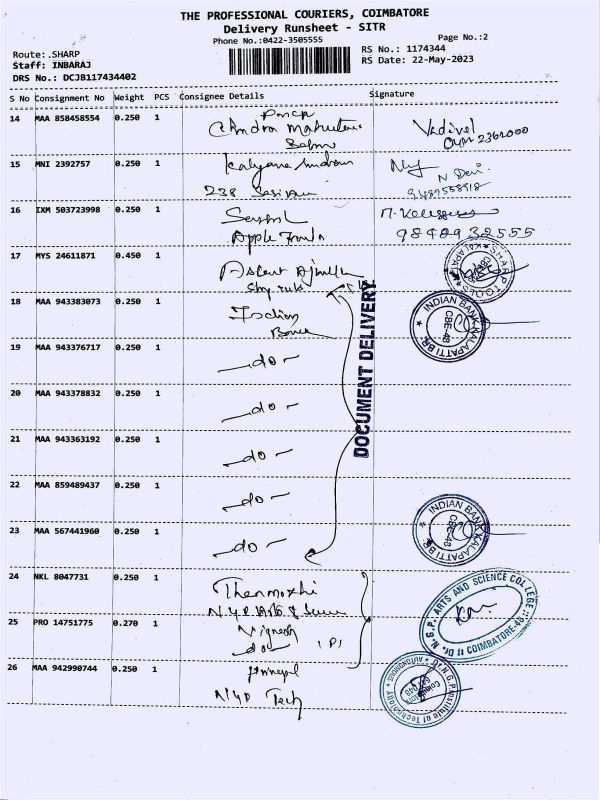 THE PROFESSIONAL COURIERS, COIMBATORE
Delivery Runsheet - SITR
Phone No.:0422-3505555
Page No.:2
Route:.SHARP
Staff: INBARAJ
DRS No.: DCJB117434402
RS No.: 1174344
RS Date: 22-May-2023
S No Consignment No Weight PCS Consignee Details Signature
14 MAA 858458554 0.250 1
Vadivel
15 MNI 2392757 0.250 1
N Devi
238
16 IXM 503723998 0.250 1
Apple
9840932555
17 MYS 24611871 0.450 1
SHARP TOOLS KALAPATTI
18 MAA 943383073 0.250 1
INDIAN BANK KALAPATTI BR. CBE-48
DOCUMENT DELIVERY
19 MAA 943376717 0.250 1 -do-
20 MAA 943378832 0.250 1 -do-
21 MAA 943363192 0.250 1 -do-
22 MAA 859489437 0.250 1 -do-
23 MAA 567441960 0.250 1 -do-
INDIAN BANK KALAPATTI BR. CBE-48
24 NKL 8047731 0.250 1 Thenmozhi
Dr. N.G.P. ARTS AND SCIENCE COLLEGE COIMBATORE-48
25 PRO 14751775 0.270 1 Vignesh
do
26 MAA 942990744 0.250 1
NGP Tech
Dr. N.G.P. Institute of Technology (AUTONOMOUS)